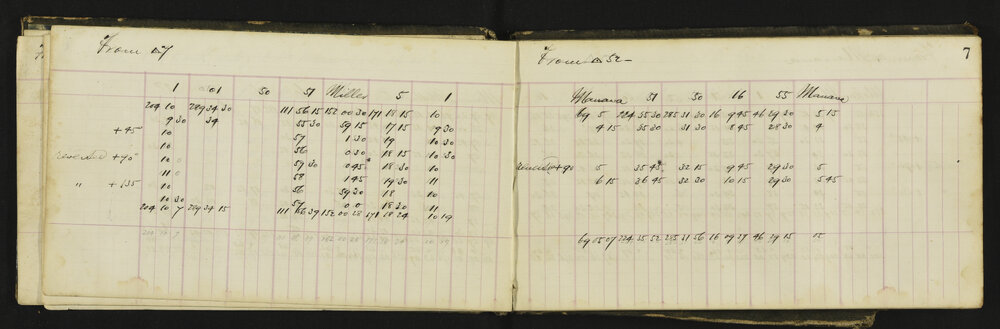 From △7
1 01 50 51 Miller 5 1
204 10 289 34 30 111 56 15 152 00 30 171 18 15 10
9 30 34 55 30 59 15 17 15 9 30
+45 10 57 1 30 19 10 30
10 56 0 30 18 15 10 30
+90° 10 0 59 30 0 45 18 30 10
11 0 58 1 45 19 30 11
" +135 10 56 59 30 18 10
10 30 57 0 0 18 30 11
204 10 7 289 34 15 111 56 39 152 00 18 171 18 24 10 19
7
From △52-
Manava 51 50 16 55 Manava
69 5 224 35 30 285 31 30 16 9 45 46 29 30 5 15
4 15 35 30 31 30 8 45 28 30 4
+90 5 35 45 32 15 9 45 29 30 5
6 15 36 45 32 30 10 15 29 30 5 45
69 05 07 224 35 52 285 31 56 16 09 37 46 29 15 15